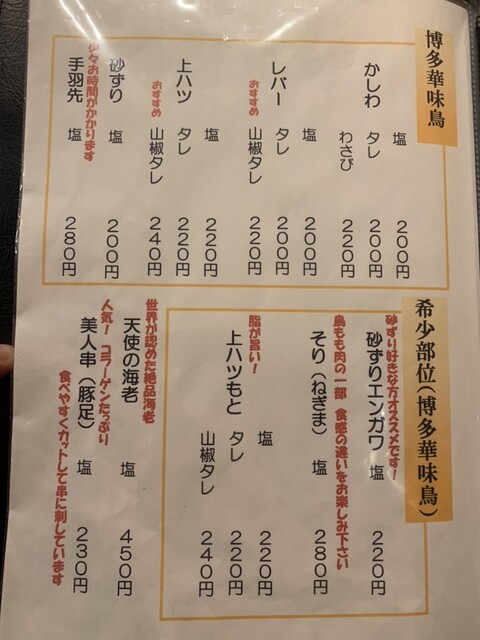 博多華味鳥
かしわ 塩 200円
タレ 200円
わさび 220円
レバー 塩 200円
タレ 200円
おすすめ 山椒タレ 220円
上ハツ 塩 220円
タレ 220円
おすすめ 山椒タレ 240円
砂ずり 塩 200円
少々お時間がかかります
手羽先 塩 280円
希少部位(博多華味鳥)
砂ずり好きな方オススメです!
砂ずりエンガワ 塩 220円
鳥もも肉の一部 食感の違いをお楽しみ下さい
そり(ねぎま) 塩 280円
脂が旨い!
上ハツもと 塩 220円
タレ 220円
山椒タレ 240円
世界が認めた絶品海老
天使の海老 塩 450円
人気! コラーゲンたっぷり
美人串(豚足) 塩 230円
食べやすくカットして串に刺しています